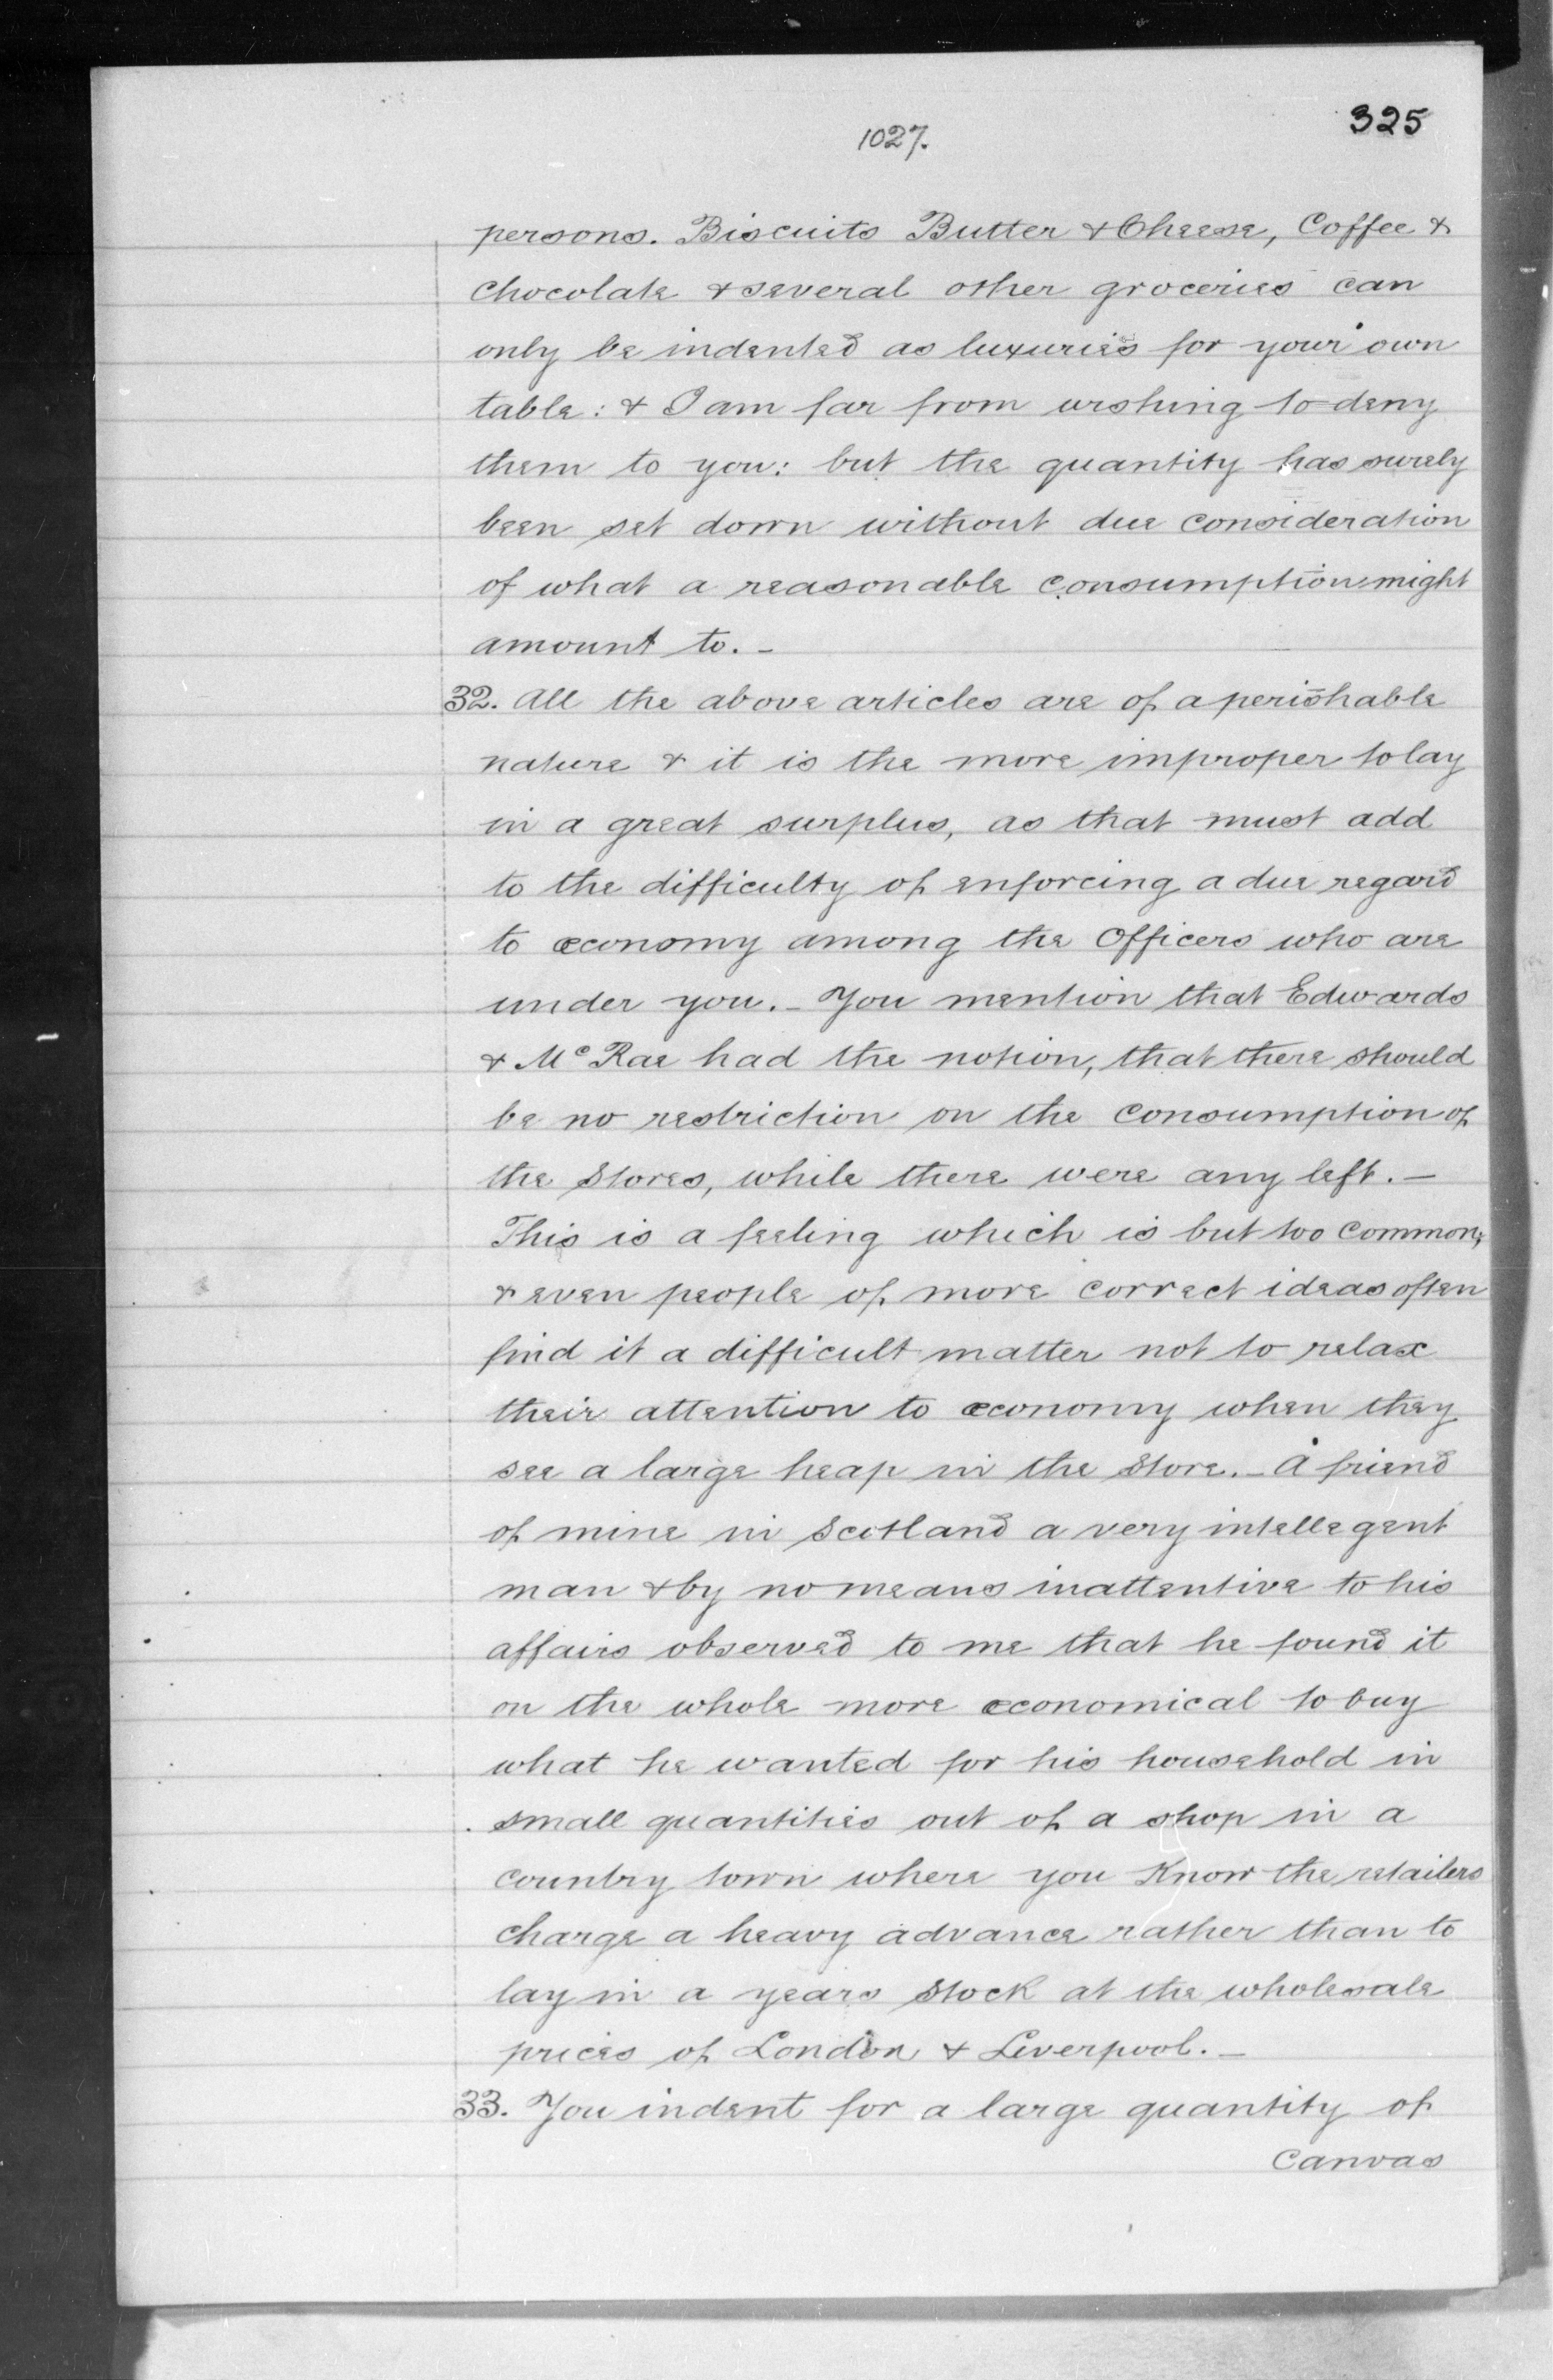 325
1027.
persons. Biscuits Butter & Cheese, Coffee &
chocolate & several other groceries can
only be indented as luxuries for your own
table: & I am far from wishing to deny
them to you: but the quantity has surely
been set down without due consideration
of what a reasonable consumption might
amount to. -
32. All the above articles are of a perishable
nature & it is the more improper to lay
in a great surplus, as that must add
to the difficulty of enforcing a due regard
to œconomy among the Officers who are
under you. - You mention that Edwards
& Mc Rae had the notion, that there should
be no restriction on the consumption of
the Stores, while there were any left. -
This is a feeling which is but too common;
& even people of more correct ideas often
find it a difficult matter not to relax
their attention to œconomy when they
see a large heap in the Store. - A friend
of mine in Scotland a very intellegent
man & by no means inattentive to his
affairs observed to me that he found it
on the whole more œconomical to buy
what he wanted for his household in
small quantities out of a shop in a
country town where you Know the retailers
charge a heavy advance rather than to
lay in a years Stock at the wholesale
prices of London & Liverpool. -
33. You indent for a large quantity of
Canvas